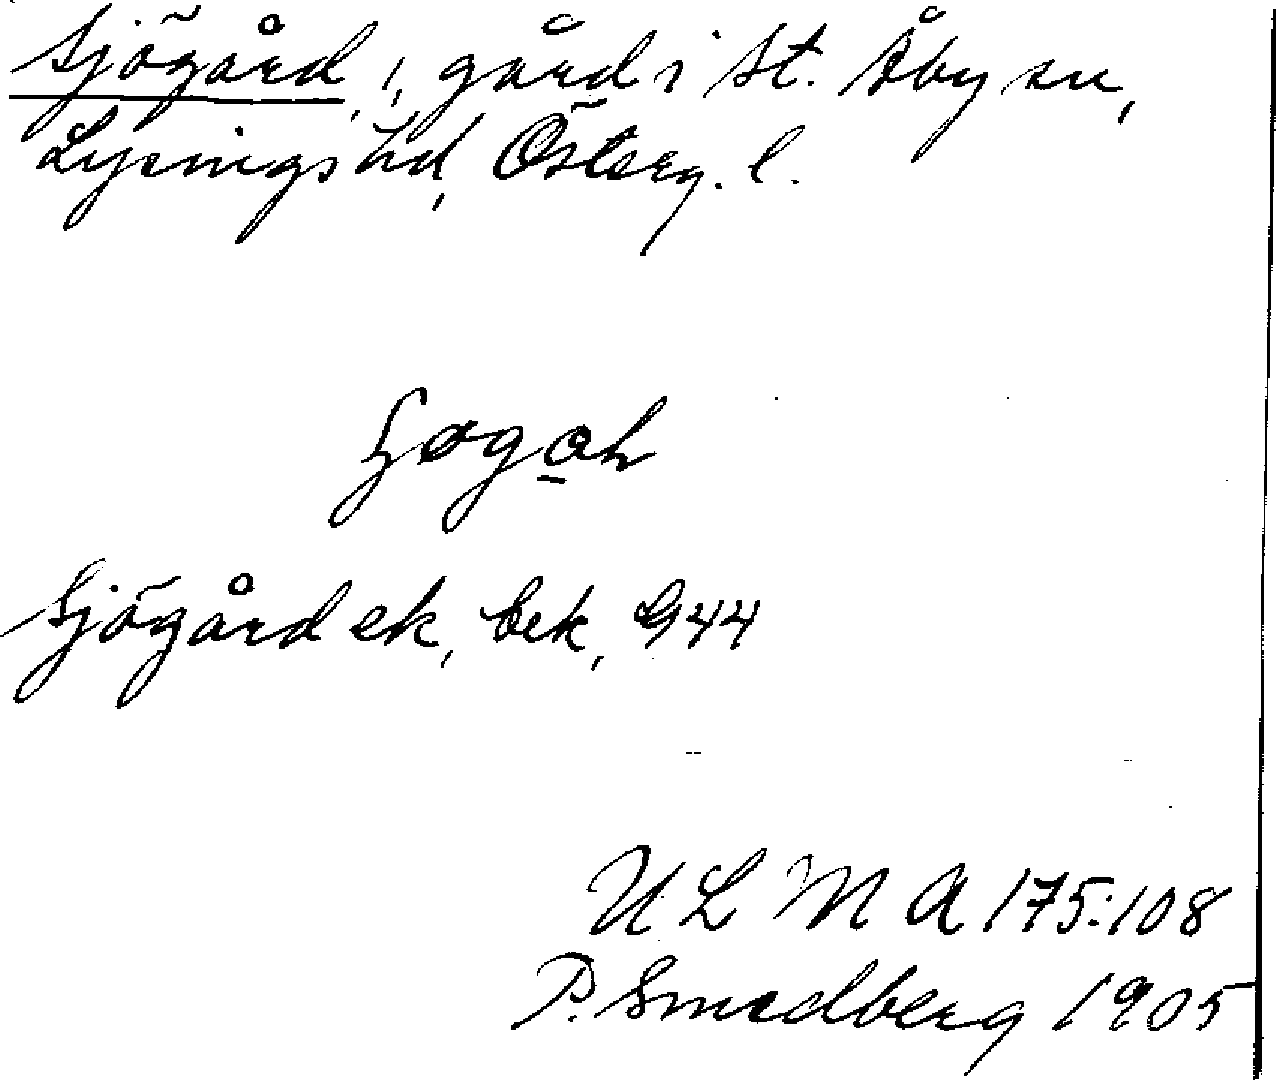 Sjögård, 1, gård i St. Åby sn,
Lysings hd, Österg. l.
Sjögård ek, bek, G 44
U L M A 175:108
P. Smedberg 1905